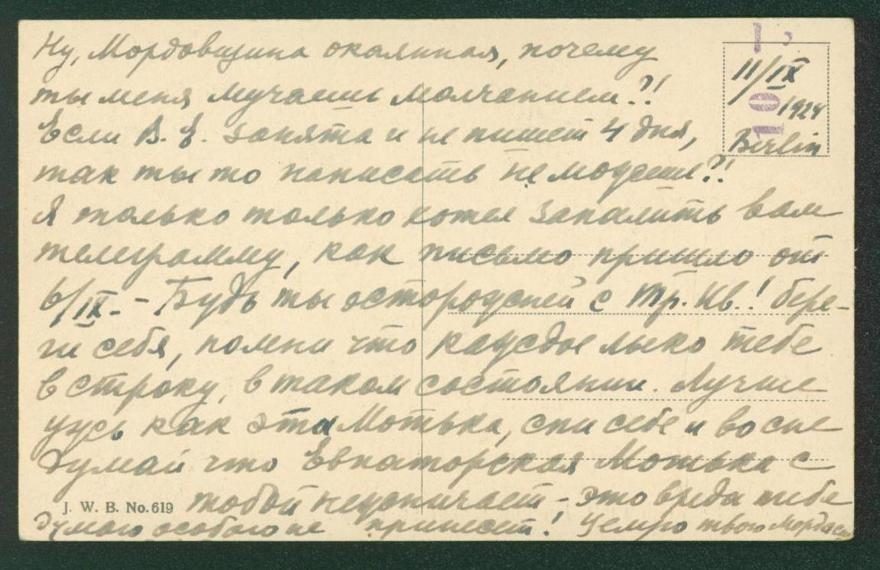 Ну, Мордовщина окаянная, почему
ты меня мучаешь молчанием?!
Если В. Е. занята и не пишет 4 дня,
так ты то написать не можешь?!
Я только только хотел запалить вам
телеграмму, как письмо пришло от
6/IX. – Будь ты осторожней с Тр. Ив.! бере-
ги себя, помни что каждое лыко тебе
в строку, в таком состоянии. Лучше
ужь как эта Мотька, спи себе и во сне
думай что Евпаторская Мотька с
тобой нежничает – это вреда тебе
думаю особого не принесет! Цемро твою
11/IX
1924
Berlin
10
J. W. B. No. 619